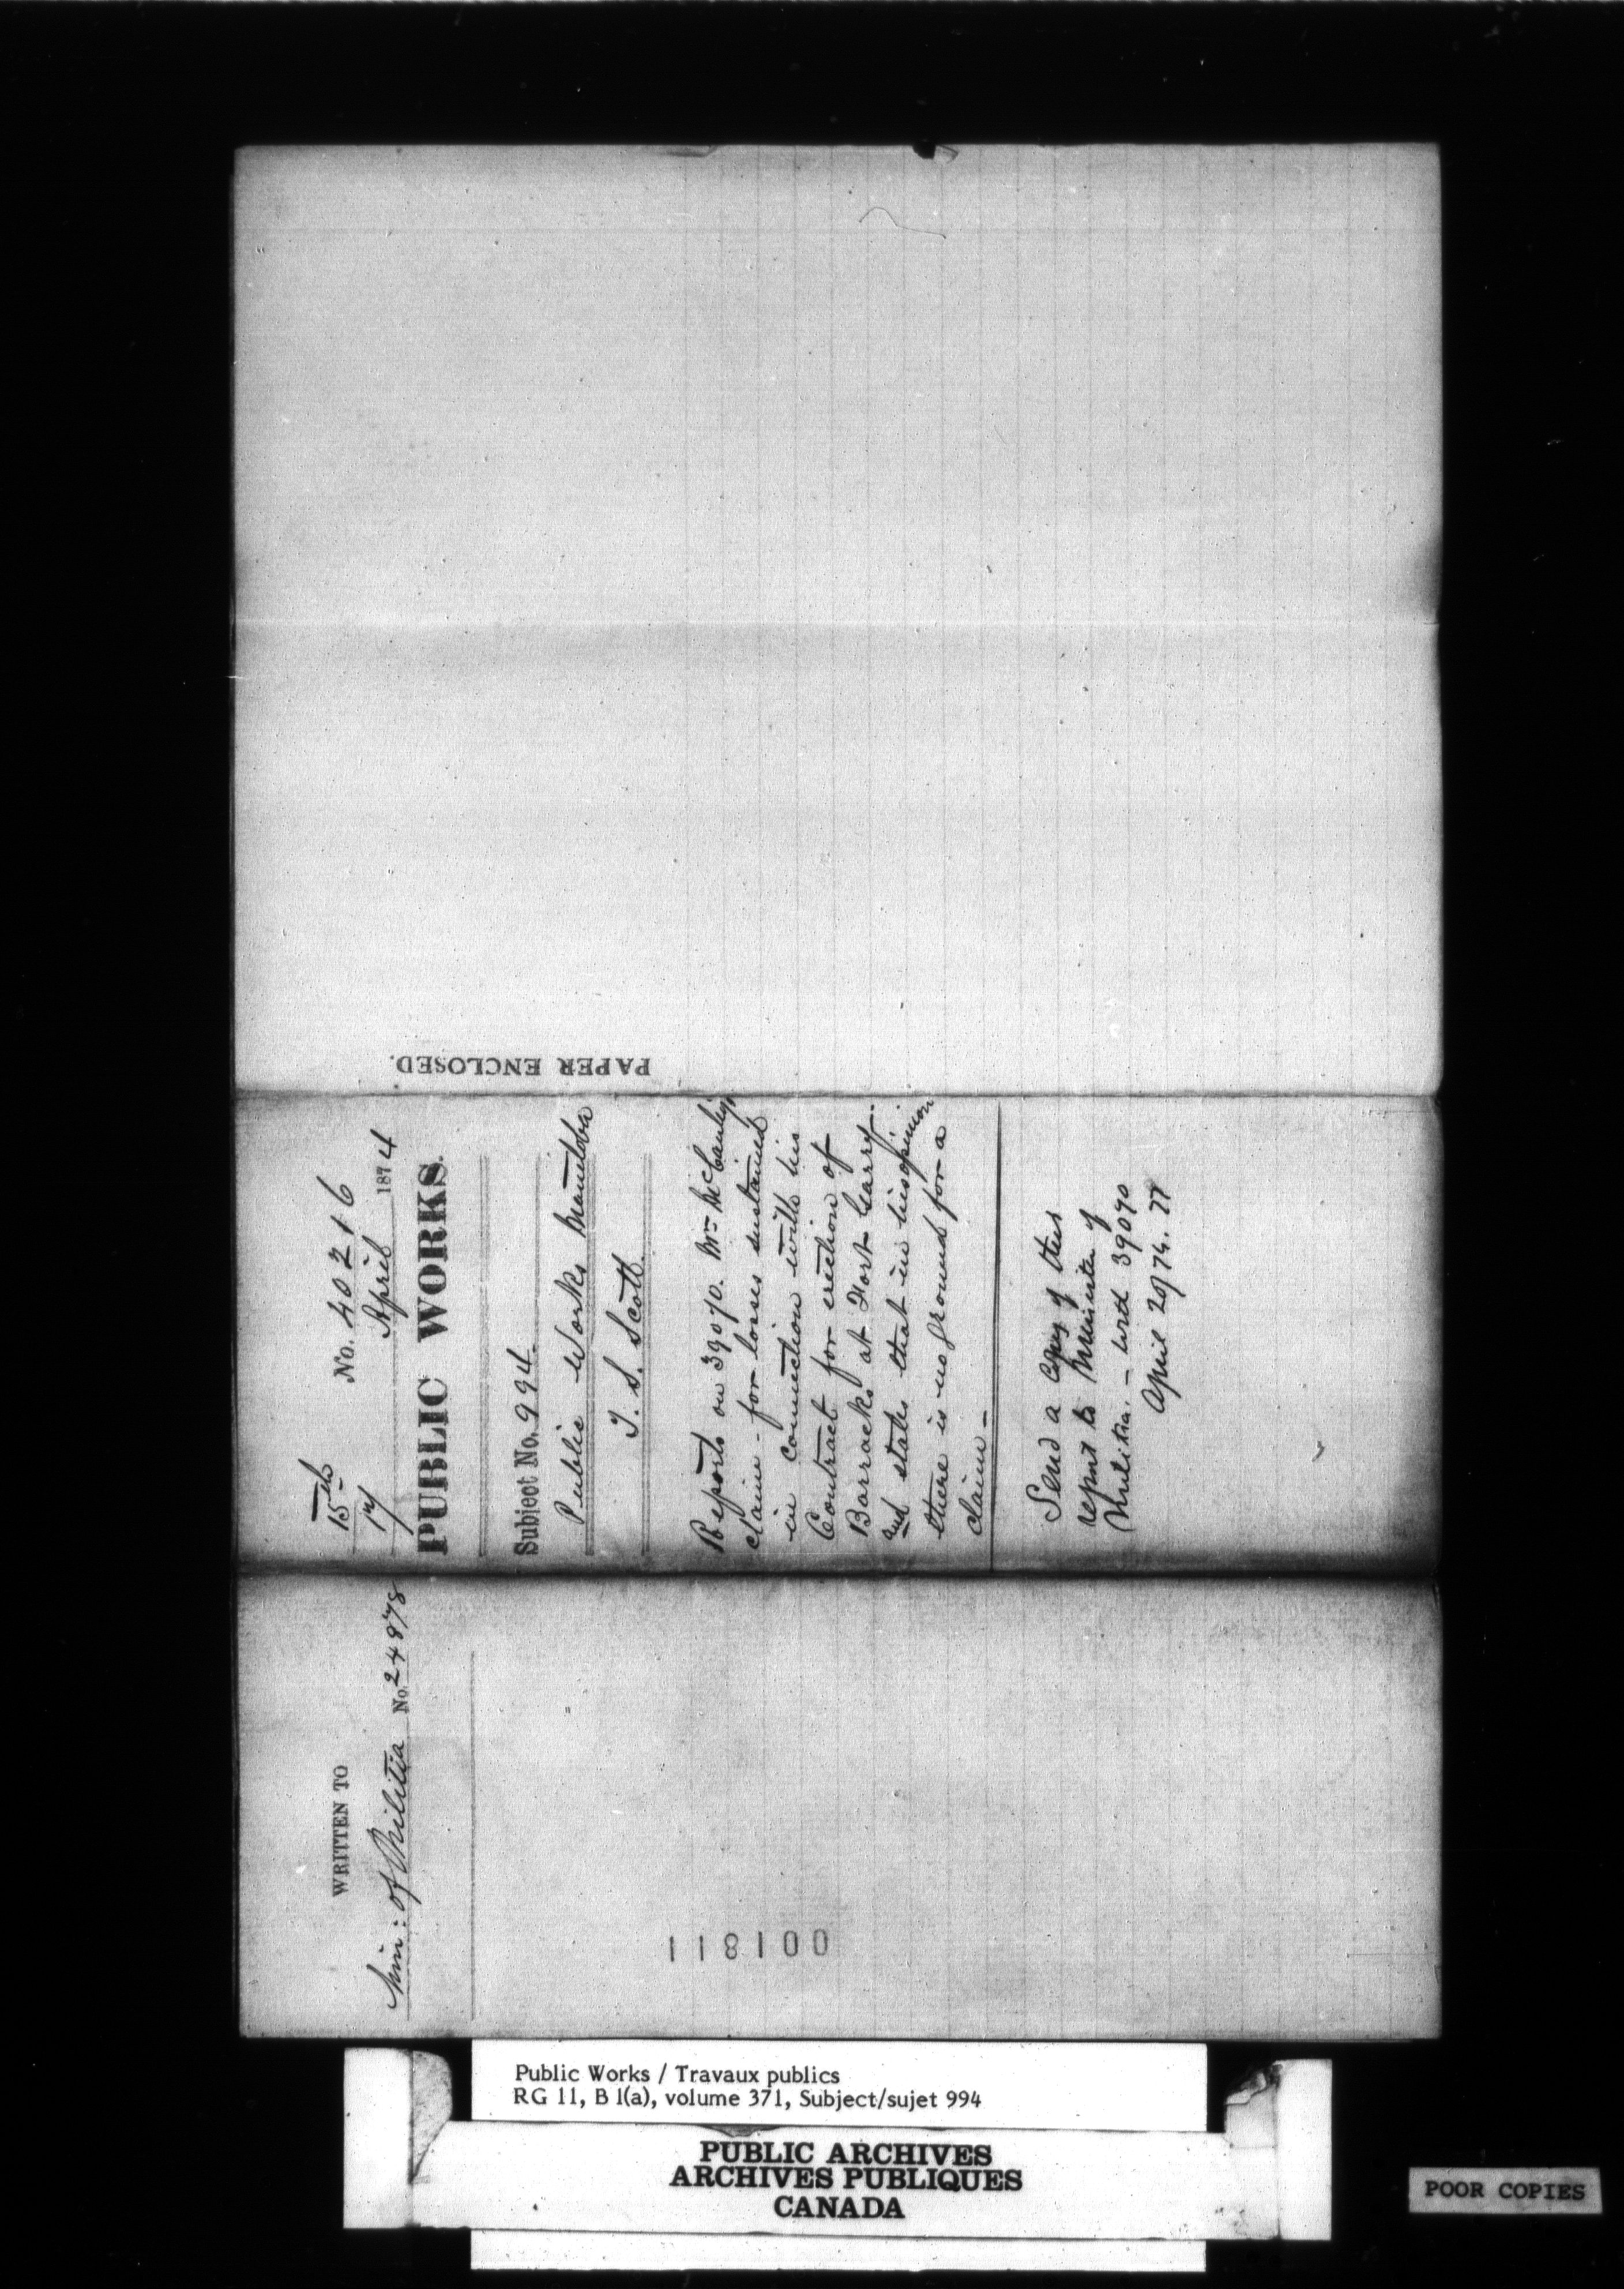 PAPER ENCLOSED.
No. 40216
15th
17 April 1874
PUBLIC WORKS.
Subject No. 994.
Public Works Manitoba
T. S. Scott.
Reports on 39070. Mr McCauley's
claim - for losses sustained
in connection with his
Contract for erection of
Barracks at Fort Garry.
and states that in his opinion
there is no ground for a
claim -
Send a Copy of this
report to Minister of
Militia. - with 39070
April 20/74.
WRITTEN TO
Min: of Militia No. 24878
001811
Public Works / Travaux publics
RG 11, B 1(a), volume 371, Subject/sujet 994
PUBLIC ARCHIVES
ARCHIVES PUBLIQUES
CANADA
POOR COPIES